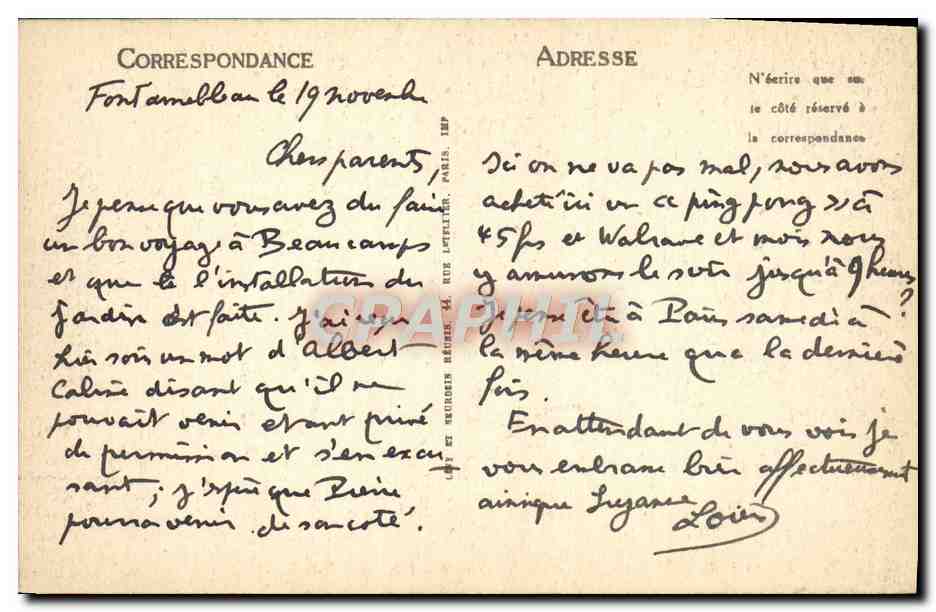 CORRESPONDANCE
Fontainebleau le 19 novembre
Chers parents,
Je pense que vous avez du faire
un bon voyage à Beaucamps
et que la l'installation du
jardin est faite. J'ai reçu
hier soir un mot d'Albert
Caline disant qu'il ne
pouvait venir etant privé
de permission et s'en excu
sant; j'espère que Pierre
pourra venir de son coté.
LEVY ET NEURDEIN RÉUNIS, 44, RUE LETELLIER, PARIS. IMP
ADRESSE
N'écrire que sur
le côté réservé à
la correspondance
Ici on ne va pas mal, nous avons
acheté ici un ping pong à
45 frs et et mois nous
y amusons le soir jusqu'à 9 heures
Je pense être à Paris samedi à ?
la même heure que la dernière
fois.
En attendant de vous voir je
vous embrasse bien affectueusement
ainsi que Suzanne
CPAPHIL